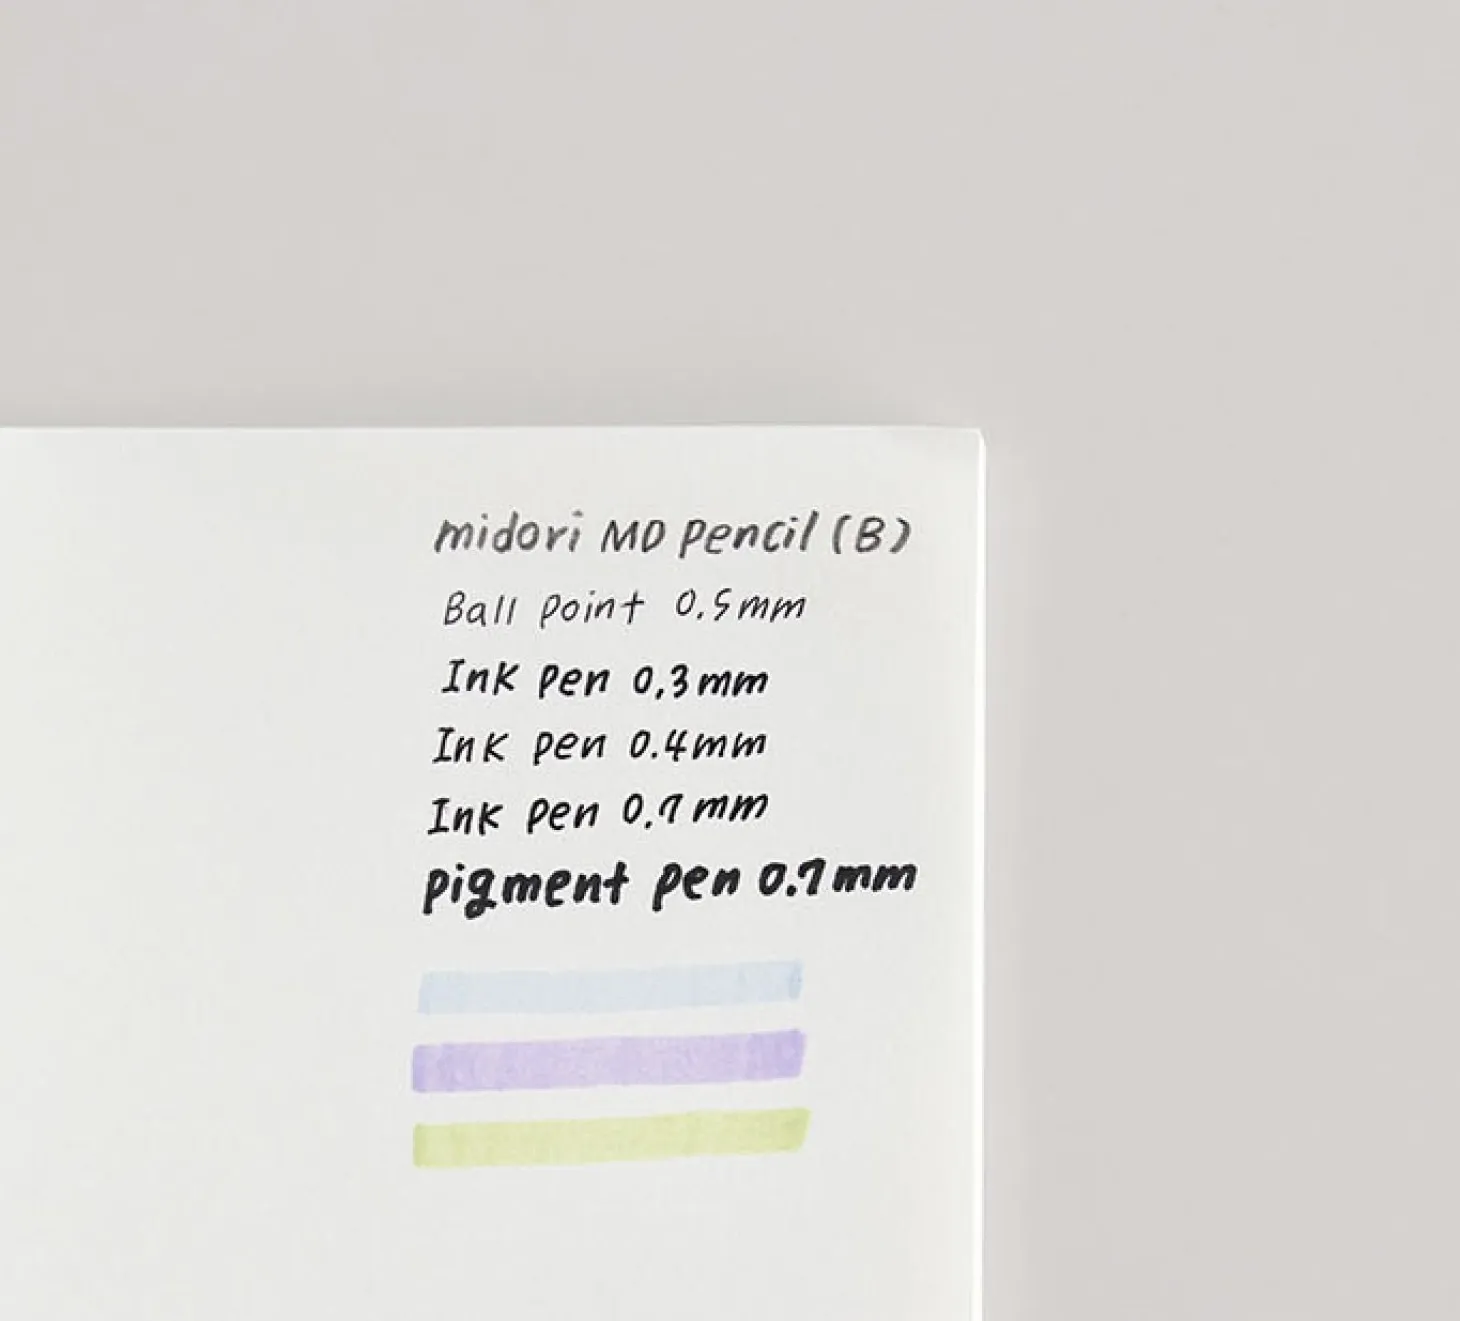 midori MD pencil (B)
Ball point 0.5mm
Ink pen 0.3mm
Ink pen 0.4mm
Ink pen 0.7mm
pigment pen 0.7mm